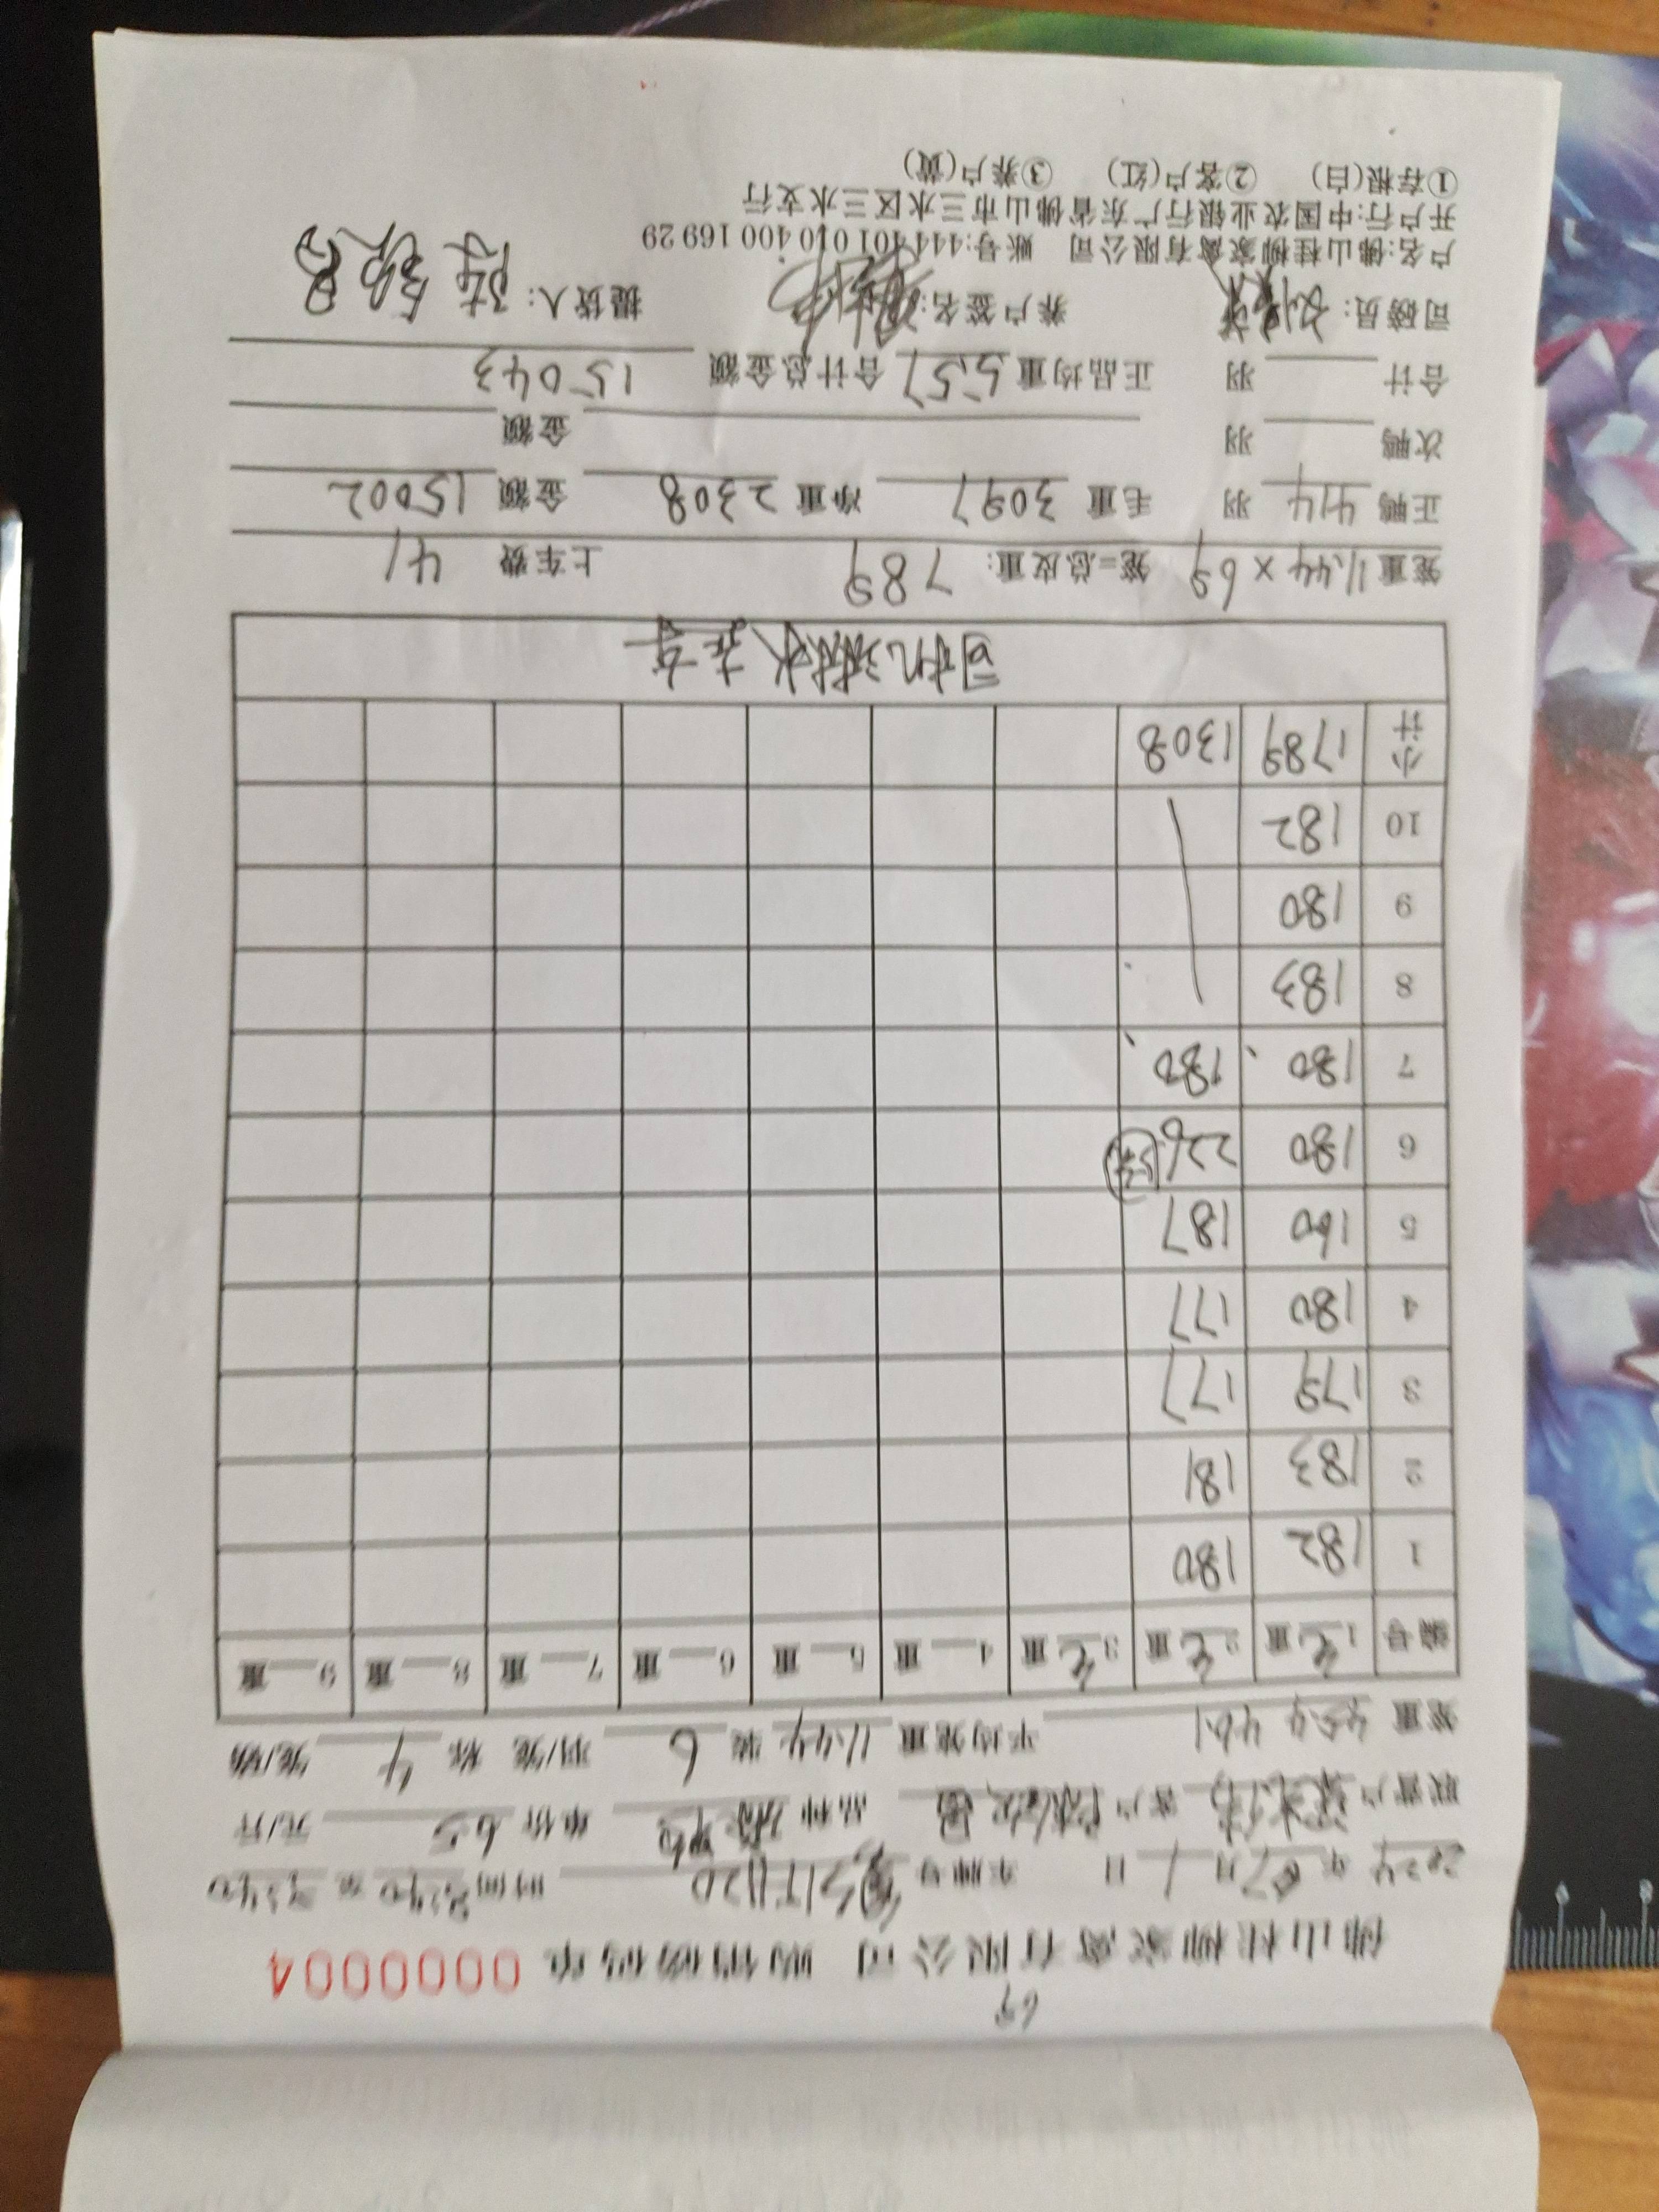 69
佛山桂柳家禽有限公司 购销磅码单 0000004
2024 年 07 月 1 日 车牌号 时间
联营户 客户 品种 单价 6.5 元/斤
笼重 454 461 平均笼重 11.44 装 6 羽/笼 称 4 笼/磅
编号 1毛重 2毛重 3毛重 4重 5重 6重 7重 8重 9重
1 182 180
2 183 181
3 179 177
4 180 177
5 160 187
6 180 226
7 180 180
8 183
9 180
10 182
小计 1789 1308
司机淋水去车
笼重 11.44 × 69 笼=总皮重: 789 上车费 41
正鸭 414 羽 毛重 3097 净重 2308 金额 15002
次鸭 羽 金额
合计 羽 正品均重 5.57 合计总金额 15043
司磅员: 养户签名: 提货人:
户名:佛山桂柳家禽有限公司 账号:444 401 010 400 169 29
开户行:中国农业银行广东省佛山市三水区三水支行
①存根(白) ②客户(红) ③养户(黄)